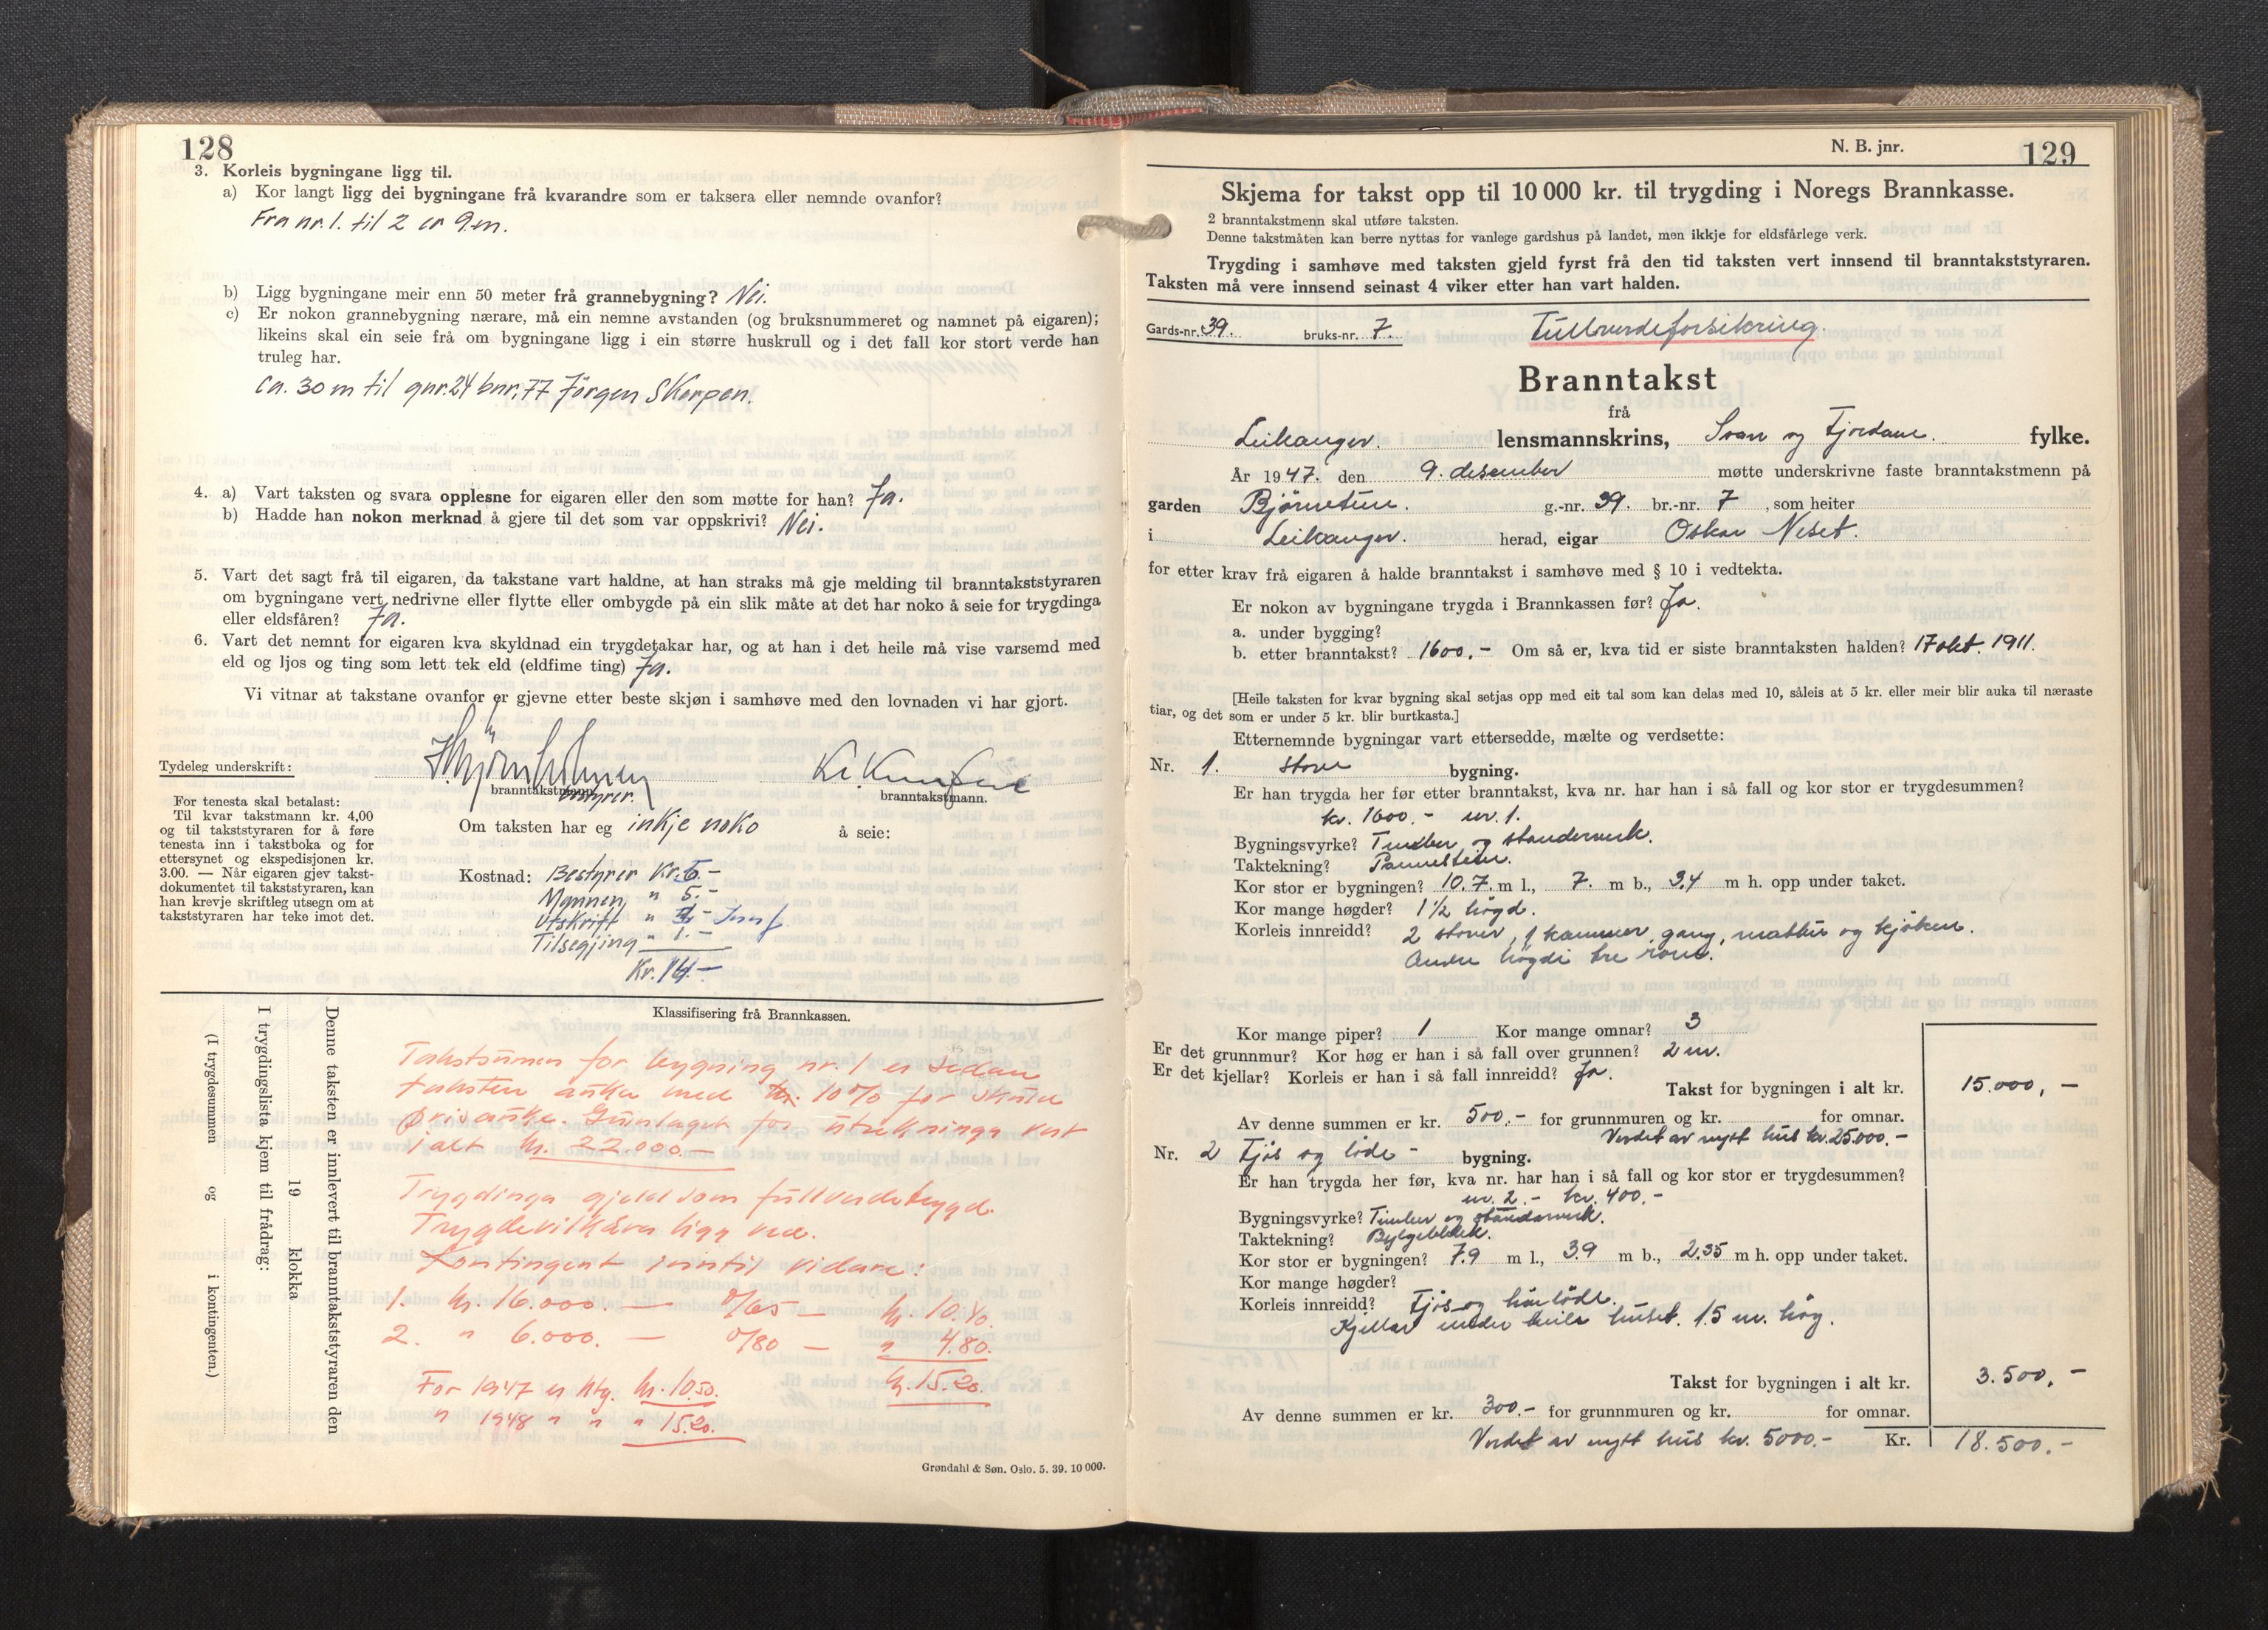 128
3. Korleis bygningane ligg til.
a) Kor langt ligg dei bygningane frå kvarandre som er taksera eller nemnde ovanfor?
Fra nr. 1. til 2 ca 9.m.
b) Ligg bygningane meir enn 50 meter frå grannebygning? Nei.
c) Er nokon grannebygning nærare, må ein nemne avstanden (og bruksnummeret og namnet på eigaren);
likeins skal ein seie frå om bygningane ligg i ein større huskrull og i det fall kor stort verde han
truleg har.
ca. 30 m til gnr. 24 bnr. 77 Jörgen Skarpen.
4. a) Vart taksten og svara opplesne for eigaren eller den som møtte for han? Ja.
b) Hadde han nokon merknad å gjere til det som var oppskrivi? Nei.
5. Vart det sagt frå til eigaren, da takstane vart haldne, at han straks må gje melding til branntakststyraren
om bygningane vert nedrivne eller flytte eller ombygde på ein slik måte at det har noko å seie for trygdinga
eller eldsfåren? Ja.
6. Vart det nemnt for eigaren kva skyldnad ein trygdetakar har, og at han i det heile må vise varsemd med
eld og ljos og ting som lett tek eld (eldfime ting) Ja.
Vi vitnar at takstane ovanfor er gjevne etter beste skjøn i samhøve med den lovnaden vi har gjort.
Tydeleg underskrift:
branntakstmann bestyrer. branntakstmann.
For tenesta skal betalast:
Til kvar takstmann kr. 4,00
og til takststyraren for å føre
tenesta inn i takstboka og for
ettersynet og ekspedisjonen kr.
3.00. — Når eigaren gjev takst-
dokumentet til takststyraren, kan
han krevje skriftleg utsegn om at
takststyraren har teke imot det.
Om taksten har eg inkje noko å seie:
Kostnad: Bestyrer Kr. 5.-
Mannen " 5.-
Utskrift "
Tilsegjing " 1.-
Kr. 14.-
Klassifisering frå Brannkassen.
Denne taksten er innlevert til branntakststyraren den
19 klokka
I trygdingslista kjem til frådrag:
(I trygdesummen og i kontingenten.)
Takstsumen for bygning nr. 1 er sidan
taksten auka med kr. 10% for skuld
prisauke. Grunlaget for utrekninga vert
i alt kr. 22.000.—
Trygdinga gjeld som fullverdetrygd.
Trygdevilkåra ligg ved.
Kontingent inntil vidare:
1. kr. 16.000.— 0/65 — kr. 10.40.
2. " 6.000. — 0/80 — " 4.80.
kr. 15.20.
For 1947 er ktg. kr. 10.50.
" 1948 " " " 15.20.
Grøndahl & Søn. Oslo. 5. 39. 10 000.
N. B. jnr. 129
Skjema for takst opp til 10 000 kr. til trygding i Noregs Brannkasse.
2 branntakstmenn skal utføre taksten.
Denne takstmåten kan berre nyttas for vanlege gardshus på landet, men ikkje for eldsfårlege verk.
Trygding i samhøve med taksten gjeld fyrst frå den tid taksten vert innsend til branntakststyraren.
Taksten må vere innsend seinast 4 viker etter han vart halden.
Gards-nr. 39. bruks-nr. 7. Fullverdeforsikring.
Branntakst
frå
Leikanger. lensmannskrins, Sogn og Fjordane. fylke.
År 1947. den 9. desember møtte underskrivne faste branntakstmenn på
garden Bjørnetun. g.-nr. 39. br.-nr. 7, som heiter
i Leikanger. herad, eigar Oskar Neset.
for etter krav frå eigaren å halde branntakst i samhøve med § 10 i vedtekta.
Er nokon av bygningane trygda i Brannkassen før? Ja.
a. under bygging?
b. etter branntakst? 1600.- Om så er, kva tid er siste branntaksten halden? 17 okt. 1911.
[Heile taksten for kvar bygning skal setjas opp med eit tal som kan delas med 10, såleis at 5 kr. eller meir blir auka til næraste
tiar, og det som er under 5 kr. blir burtkasta.]
Etternemnde bygningar vart ettersedde, mælte og verdsette:
Nr. 1. Stove bygning.
Er han trygda her før etter branntakst, kva nr. har han i så fall og kor stor er trygdesummen?
kr. 1600.- nr. 1.
Bygningsvyrke? Timber og standerverk.
Taktekning? Pannestein.
Kor stor er bygningen? 10.7. m l., 7. m b., 3.4 m h. opp under taket.
Kor mange høgder? 1 1/2 högd.
Korleis innreidd? 2 stover, 1 kammer, gang, matbu og kjöken.
Andre högdi tre rom.
Kor mange piper? 1 Kor mange omnar? 3
Er det grunnmur? Kor høg er han i så fall over grunnen? 2 m.
Er det kjellar? Korleis er han i så fall innreidd? Ja.
Takst for bygningen i alt kr. 15.000,-
Av denne summen er kr. 500.- for grunnmuren og kr. for omnar.
Verdet av nytt hus kr. 25.000.-
Nr. 2 Fjös og löde - bygning.
Er han trygda her før, kva nr. har han i så fall og kor stor er trygdesummen?
nr. 2.- kr. 400.-
Bygningsvyrke? Timber og standerverk.
Taktekning? Bylgeblekk.
Kor stor er bygningen? 7.9 m l., 3.9 m b., 2.35 m h. opp under taket.
Kor mange høgder?
Korleis innreidd? Fjös og höilöde.
Kjellar under heile huset. 1.5 m. hög.
Takst for bygningen i alt kr. 3.500.-
Av denne summen er kr. 300.- for grunnmuren og kr. for omnar.
Verdet av nytt hus kr. 5000.- Kr. 18.500.-